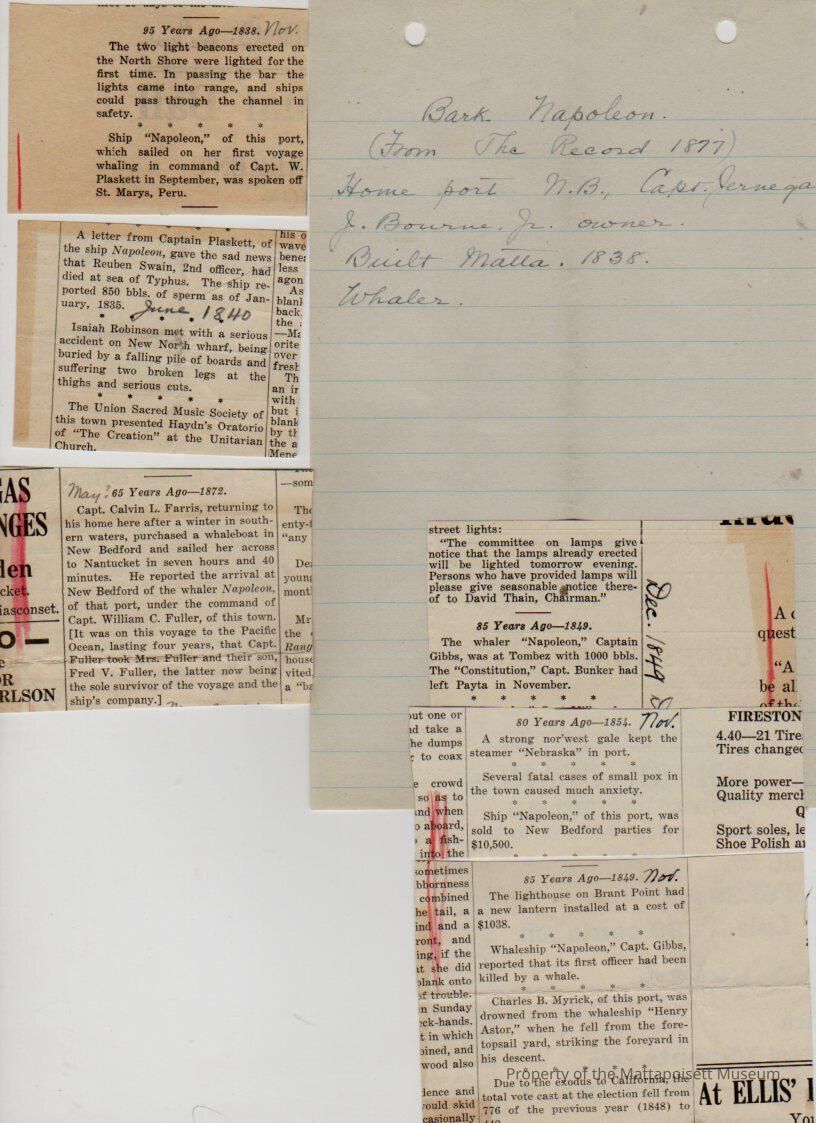 95 Years Ago—1838. Nov.
The two light beacons erected on
the North Shore were lighted for the
first time. In passing the bar the
lights came into range, and ships
could pass through the channel in
safety.
* * * * *
Ship "Napoleon," of this port,
which sailed on her first voyage
whaling in command of Capt. W.
Plaskett in September, was spoken off
St. Marys, Peru.
Bark Napoleon.
(From The Record 1877)
Home port N.B., Capt. Jernega
J. Bourne, Jr. owner.
Built Matta. 1838.
Whaler.
A letter from Captain Plaskett, of
the ship Napoleon, gave the sad news
that Reuben Swain, 2nd officer, had
died at sea of Typhus. The ship re-
ported 850 bbls. of sperm as of Jan-
uary, 1835. June 1840
* * * * *
Isaiah Robinson met with a serious
accident on New North wharf, being
buried by a falling pile of boards and
suffering two broken legs at the
thighs and serious cuts.
* * * * *
The Union Sacred Music Society of
this town presented Haydn's Oratorio
of "The Creation" at the Unitarian
Church.
his o
wave
benea
less
agon
As
blank
back,
the
—Ma
orite
over
fresh
Th
an in
with
but i
blank
by th
the a
Mene
GAS
NGES
den
cket.
iasconset.
O —
e
OR
RLSON
May? 65 Years Ago—1872.
Capt. Calvin L. Farris, returning to
his home here after a winter in south-
ern waters, purchased a whaleboat in
New Bedford and sailed her across
to Nantucket in seven hours and 40
minutes. He reported the arrival at
New Bedford of the whaler Napoleon,
of that port, under the command of
Capt. William C. Fuller, of this town.
[It was on this voyage to the Pacific
Ocean, lasting four years, that Capt.
Fuller took Mrs. Fuller and their son,
Fred V. Fuller, the latter now being
the sole survivor of the voyage and the
ship's company.]
—som
The
enty-f
"any
De
young
mont
Mr
the
Rang
house
vited,
a "ba
street lights:
"The committee on lamps give
notice that the lamps already erected
will be lighted tomorrow evening.
Persons who have provided lamps will
please give seasonable notice there-
of to David Thain, Chairman."
85 Years Ago—1849.
The whaler "Napoleon," Captain
Gibbs, was at Tombez with 1000 bbls.
The "Constitution," Capt. Bunker had
left Payta in November.
* * * * *
Dec. 1849
A c
quest
"A
be al
of the
out one or
nd take a
he dumps
r to coax
e crowd
so as to
and when
o aboard,
a fish-
into the
80 Years Ago—1854. Nov.
A strong nor'west gale kept the
steamer "Nebraska" in port.
* * * * *
Several fatal cases of small pox in
the town caused much anxiety.
* * * * *
Ship "Napoleon," of this port, was
sold to New Bedford parties for
$10,500.
FIRESTON
4.40—21 Tire
Tires changed
More power—
Quality merch
Q
Sport soles, le
Shoe Polish an
sometimes
bbornness
combined
he tail, a
ind and a
ront, and
ing, if the
at she did
plank onto
of trouble.
n Sunday
eck-hands.
t in which
bined, and
wood also
dence and
vould skid
casionally
85 Years Ago—1849. Nov.
The lighthouse on Brant Point had
a new lantern installed at a cost of
$1038.
* * * * *
Whaleship "Napoleon," Capt. Gibbs,
reported that its first officer had been
killed by a whale.
* * * * *
Charles B. Myrick, of this port, was
drowned from the whaleship "Henry
Astor," when he fell from the fore-
topsail yard, striking the foreyard in
his descent.
* * * * *
Due to the exodus to California, the
total vote cast at the election fell from
776 of the previous year (1848) to
At ELLIS'
You
Property of the Mattapoisett Museum